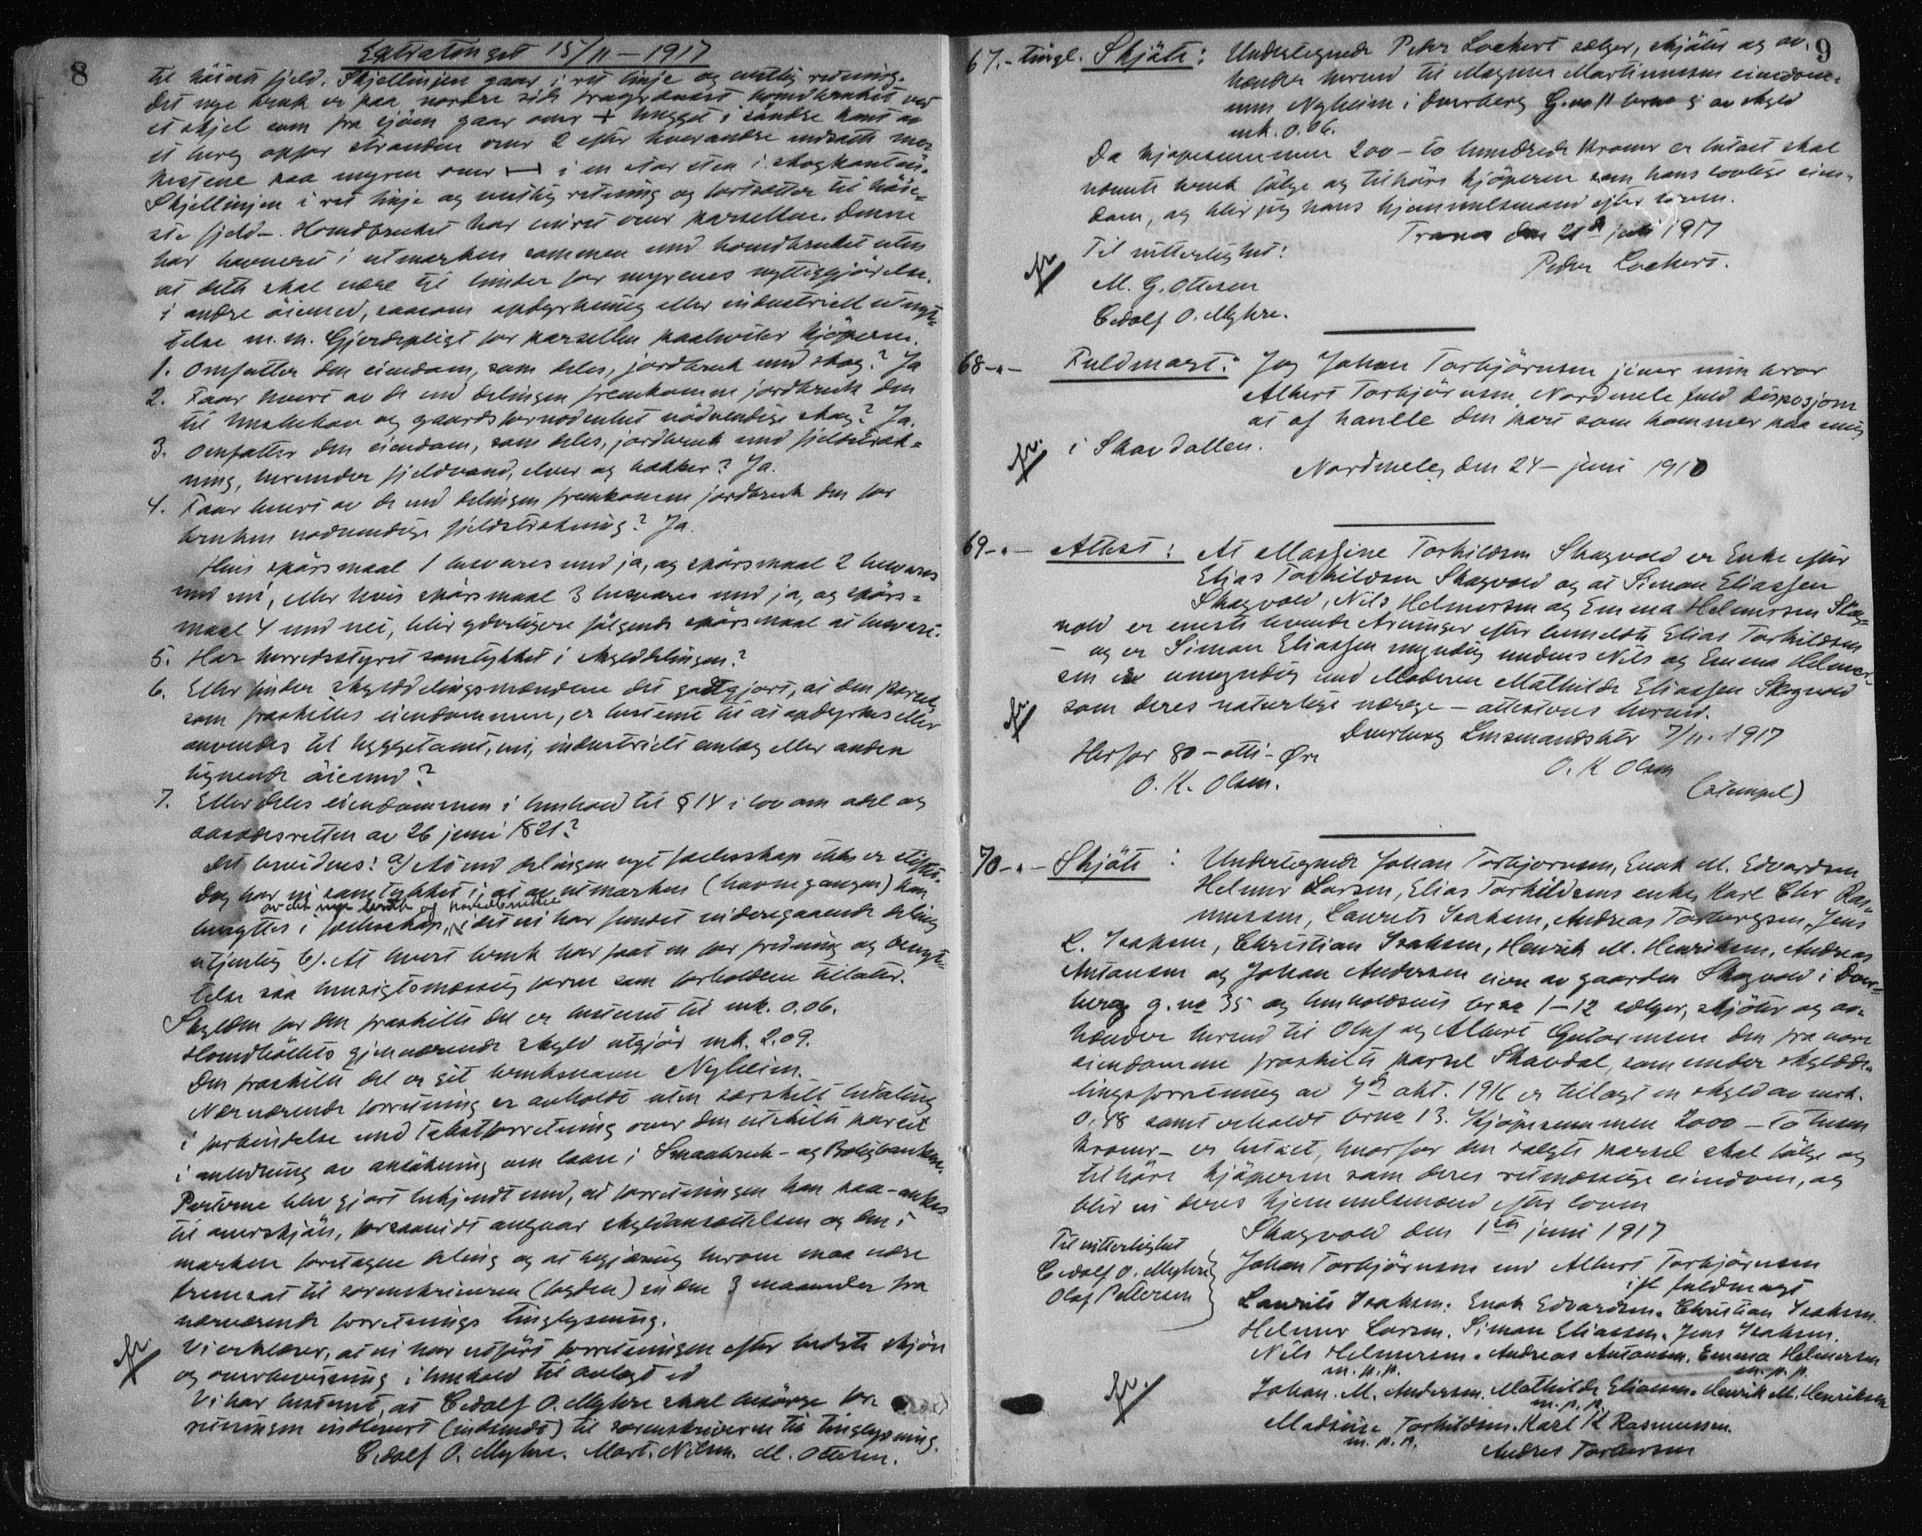 8
Extratinget 15/11-1917
til höieste fjeld. Skjellinjen gaar i ret linje og vestlig retning.
Det nye bruk er paa nordre side begrænset hovedbruket ved
et skjel som fra sjöen gaar over + hugget i söndre kant av
et berg oppfor stranden over 2 efter hverandre nedsatte mer
kestene paa myren over i en stor sten i skogkanten.
Skjellinjen i ret linje og vestlig retning og fortsætter til höie-
ste fjeld. Hovedbruket har veiret over parsellen. Denne
har havneret i utmarken sammen med hovedbruket uten
at dette skal være til hinder for myrenes nyttiggjörelse
i andre öiemed, saasom opdyrkning eller industriell utnyt-
telse m.m. Gjerdepligt for parsellen paahviler kjöperen.
1. Omfatter den eiendom, som deles, jordbruk med skog? Ja
2. Faar hvert av de ved delingen fremkomne jordbruk den
til husbehov og gaardsfornödenhet nödvendige skog? Ja.
3. Omfatter den eiendom, som deles, jordbruk med fjeldstræk-
ning, herunder fjeldvand, elver og bækker? Ja.
4. Faar hvert av de ved delingen fremkomne jordbruk den for
bruken nödvendige fjeldstrækning? Ja
Hvis spörsmaal 1 besvares med ja, og spörsmaal 2 besvares
med nei, eller hvis spörsmaal 3 besvares med ja, og spörs-
maal 4 med nei, blir yderligere fölgende spörsmaal at besvare.
5. Har herredsstyret samtykket i skylddelingen?
6. Eller finder skylddelingsmændene det godtgjort, at den parcel
som fraskilles eiendommen, er bestemt til at opdyrkes eller
anvendes til byggetomt, vei, industrielt anlæg eller anden
lignende öiemed?
7. Eller deles eiendommen i henhold til § 14 i lov om odel og
aasædesretten av 26 juni 1821?
Det bevidnes: a) At ved delingen nyt fælesskap ikke er stiftet.
Dog har vi samtykket i, at av utmarken (havnegangen) kan
av det nye bruk og hovedbruket
benyttes i fælesskap, idet vi har fundet inderegaaende deling
utjenlig b). At hvert bruk har faat en for fredning og benyt-
telse saa hensigtsmæssig form som forholdene tillater.
Skylden for den fraskilte del er bestemt til mk. 0.06.
Hovedbölets gjenværende skyld utgjör mk. 2.09.
Den fraskilte del er git bruksnavn Nyheim.
Nærværende forretning er avholdt uten særskilt betaling
i forbindelse med takstforretning over den utskilte parcel
i anledning av ansökning om laan i Smaabruk- og Boligbanken.
Parterne blev gjort bekjendt med, at forretningen kan paa-ankes
til overskjön, forsaavidt angaar skyldansættelsen og den i
marken foretagne deling og at begjæring herom maa være
fremsat til sorenskriveren (byfoden) inden 3 maaneder fra
nærværende forretnings tinglysning.
Vi erklærer, at vi har utfört forretningen efter bedste skjön
og overbevisning i henhold til avlagt ed
Vi har bestemt, at Cedolf O. Myhre skal besörge for-
retningen indlevert (indsendt) til sorenskriveren til tinglysning.
Cedolf O. Myhre. Mort. Nilsen. M. Ottesen.
9
67.- tingl. Skjöte: Undertegnede Peder Lockert sælger, skjöter og av-
hænder herved til Magnus Martinussen eiendom-
men Nyheim i Dverberg G.no 11 brno 5 av skyld
mk. 0.06.
Da kjöpesummen 200 - to hundrede kroner er betalt skal
nævnte bruk fölge og tilhöre kjöperen som hans lovlige eien-
dom, og blir jeg hans hjemmelsmand efter loven.
Tranes den 21de juli 1917
Til vitterlighet: Peder Lockert.
M. G. Ottesen
Cedolf O. Myhre.
68-"- Fuldmagt: Jeg Johan Torbjörnsen jiver min bror
Albert Torbjörnsen Nordmele fuld disposjom
at af hanlle den part som kommer paa mig
i Skavdallen.
Nordmeleg den 24- juni 1910
69-"- Attest: At Massine Torkildsen Skogvold er Enke efter
Elias Torkildsen Skogvold og at Simon Eliassen
Skogvold, Nils Helmersen og Emma Helmersen Skog-
vold er eneste levende Arvinger efter bemeldte Elias Torkildsen
- og er Simon Eliassen myndig medens Nils og Emma Helmer-
sen er umyndig med Moderen Mathilde Eliassen Skogvold
som deres naturlige værge - attesteres herved.
Dverberg Lensmandsktr 7/11-1917
Herfor 80 - otti - Öre O. K Olsen
O. K. Olsen. (stempel)
70-"- Skjöte: Undertegnede Johan Torbjornsen, Enok M. Edvardsen
Helmer Larsen, Elias Torkildsens enke, Karl Chr Ras-
mussen, Laurits Isaksen, Andreas Torbergsen, Jens
L. Isaksen, Christian Isaksen, Henrik M. Henriksen, Andreas
Antonsen og Johan Andersen eiere av gaarden Skogvold i Dver-
berg g.no 35 og henholdsvis brno 1-12 sælger, skjöter og av-
hænder herved til Oluf og Albert Gutormsen den fra vore
eiendomme fraskilte parsel Skavdal, som under skylddde-
lingsforretning av 7de okt. 1916 er tillagt en skyld av mrk.
0.48 samt erholdt brno 13. Kjöpesummen 2000 - to tusen
kroner - er betalt, hvorfor den solgte parsel skal fölge og
tilhöre kjöperen som deres retmæssige eiendom, og
blir vi deres hjemmelsmænd efter loven
Skogvold den 1ste juni 1917
Til vitterlighet
Cedolf O. Myhre
Olaf Pettersen
Johan Torbjörnsen ved Albert Torbjörnsen
ifl fuldmagt
Laurits Isaksen. Enok Edvardsen. Christian Isaksen.
Helmer Larsen. Simon Eliassen. Jens Isaksen.
Nils Helmersen. Andreas Antonsen. Emma Helmersen
m.p.p. m.p.p.
Johan. M. Andersen. Mathilde Eliassen. Henrik M. Henriksen
m.p.p.
Madsine Torkildsen. Karl K Rasmussen.
m.p.p. Andres Torbersen